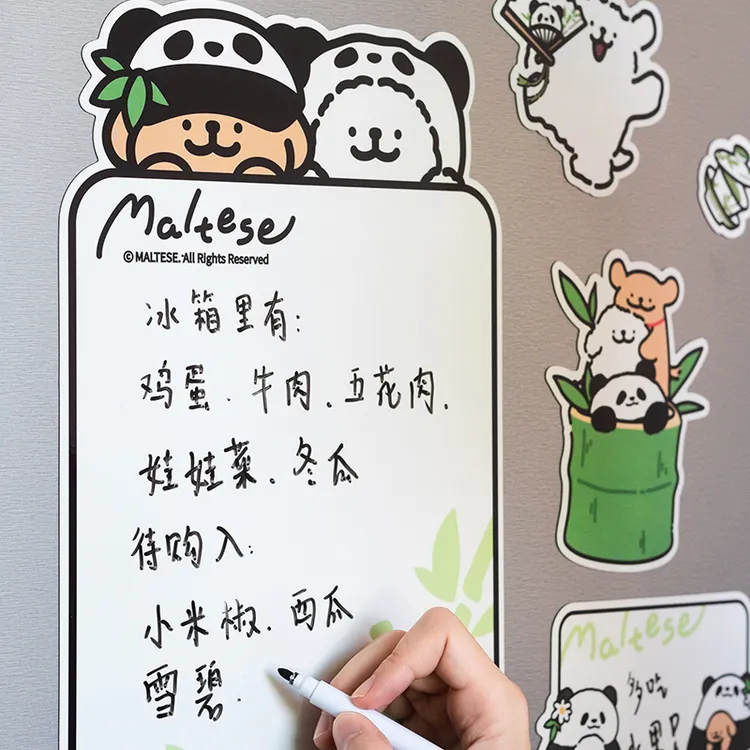 Maltese
© MALTESE. All Rights Reserved
冰箱里有:
鸡蛋.牛肉.五花肉.
娃娃菜.冬瓜
待购入:
小米椒.西瓜
雪碧.
Maltese
多吃